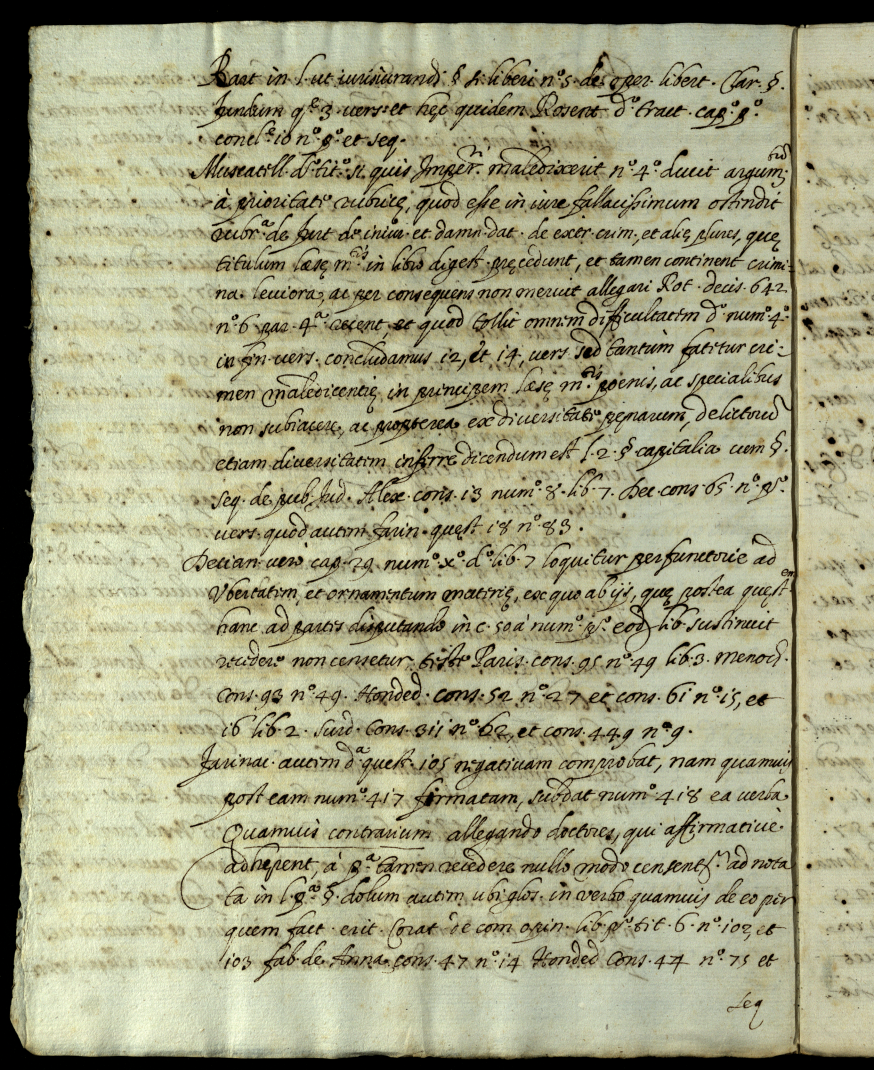 Bart in l. ut iurisiurandi § si liberi nº 5. de oper. libert. Clar. §.
fundum qe 3. vers. et hęc quidem Rosent dº tract. capº pº.
concle 10 nº pº et seq.
Muscatell. dº titº si quis Imperri maledixerit nº 4º ducit argumtū
à prioritate rubricę, quod esse in iure fallacissimum ostendit
rubra de furt. de iniur. et damn. dat. de extr. crim., et alię plures, quę
titulum læsę mtis in libro digest. pręcedunt, et tamen continent crimi-
na leviora, ac per consequens non meruit allegari Rot. decis. 642
nº 6. par. 4a recent, et quod tollit omnem difficultatem dº numº 4º
in fin. vers. concludamus 12, et 14, vers. sed tantùm fatetur cri-
men maledicentię in principem læsę mtis poenis, ac specialibus
non subiacere, ac propterea ex diversitate pęnarum, delictorū
etiam diversitatem inferre dicendum est l. 2. § capitalia cum §.
seq. de pub. Jud. Alex. cons. 13 num. 8. lib. 7. Dec. cons. 65. nº pº.
vers. quod autem farin. quęst. 18 nº 83.
Decian. verò cap. 29 numº xº dº lib. 7 loquitur perfunctorie ad
Ubertatem, et ornamentum materię, ex quo ab ijs, quę postea quęstem
hanc ad partes disputando in c. 50 à numº pº eod. lib. sustinuit
recedere non censetur teste Paris. cons. 95 nº 49 lib. 3. menoch.
Cons. 93 nº 49. Honded. cons. 52 nº 27 et cons. 61 nº 15, et
16 lib. 2. Surd. Cons. 311 nº 62, et cons. 449 nº 9.
Farinac. autem da quest. 105 negativam comprobat, nam quamuis
post eam numº 417 firmatam, subdat numº 418 ea verba
Quamuis contrarium allegando doctores, qui affirmativè
adhęrent, à pa tamen recedere nullo modo censent ad nota
ta in l. pa § dolum autem ubi glos. in verbo quamuis de eo per
quem fact. erit. Corat. de com. opin. lib. pº tit. 6. nº 102, et
103 fab. de Anna cons. 47 nº 14 Honded. Cons. 44 nº 75 et
seq